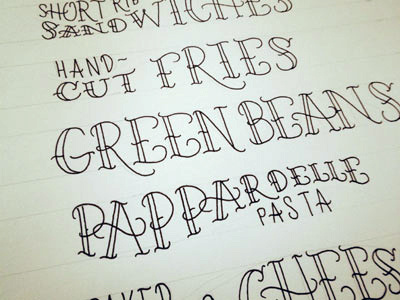 SHORT RIB
SANDWICHES
HAND-
CUT FRIES
GREEN BEANS
PAPPARDELLE
PASTA
BAKED
CHEES